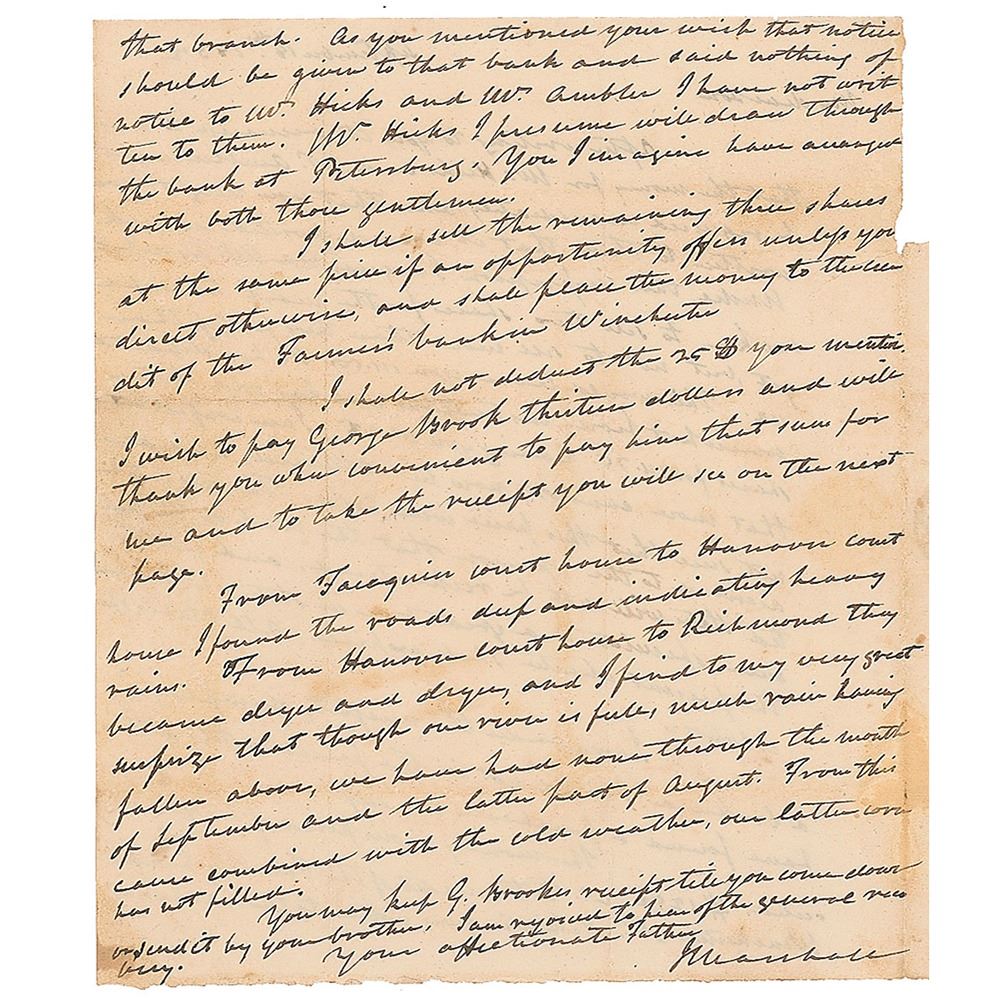 that branch. As you mentioned your wish that notice
should be given to that bank and said nothing of
notice to Mr. Hicks and Mr. Ambler I have not writ
ten to them. Mr. Hicks I presume will draw through
the bank at Petersburg. You I imagine have arranged
with both those gentlemen.
I shall sell the remaining three shares
at the same price if an opportunity offers unless you
direct otherwise, and shall place the money to the cre
dit of the Farmer's bank in Winchester
I shall not deduct the 25 $ you mention.
I wish to pay George Brook thirteen dollars and will
thank you when convenient to pay him that sum for
me and to take the receipt you will see on the next
page.
From Facaquier court house to Hanover court
house I found the roads deep and indicating heavy
rains. From Hanover court house to Richmond they
became dryer and dryer, and I find to my very great
surprize that though our river is full, much rain having
fallen above, we have had none through the month
of September and the latter part of August. From this
cause combined with the cold weather, our latter corn
has not filled.
You may keep G. Brookes receipt till you come down
or send it by your brother. I am rejoiced to hear of the general reco
very.
Your affectionate Father
J Marshall